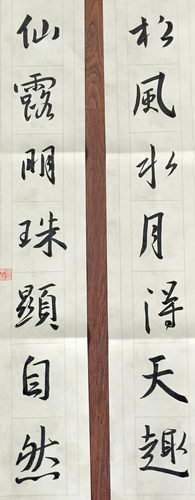 松風水月得天趣
仙露明珠顯自然